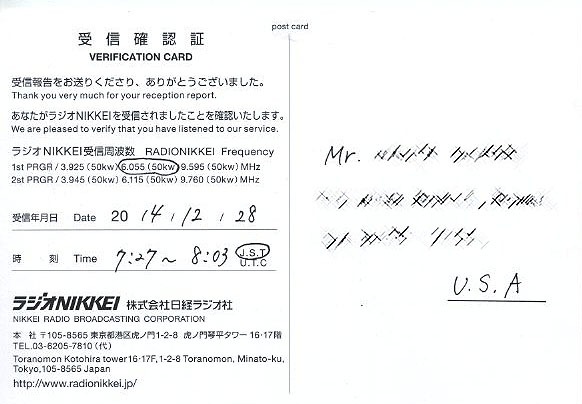 post card
受信確認証
VERIFICATION CARD
受信報告をお送りくださり、ありがとうございました。
Thank you very much for your reception report.
あなたがラジオNIKKEIを受信されましたことを確認いたします。
We are pleased to verify that you have listened to our service.
ラジオNIKKEI受信周波数 RADIONIKKEI Frequency
1st PRGR / 3.925 (50kw) 6.055 (50kw) 9.595 (50kw) MHz
2st PRGR / 3.945 (50kw) 6.115 (50kw) 9.760 (50kw) MHz
受信年月日 Date 2014, 12, 28
時 刻 Time 7:27~8:03 J.S.T
U.T.C
ラジオNIKKEI 株式会社日経ラジオ社
NIKKEI RADIO BROADCASTING CORPORATION
本 社 〒105-8565 東京都港区虎ノ門1-2-8 虎ノ門琴平タワー16・17階
TEL.03-6205-7810 (代)
Toranomon Kotohira tower16・17F,1-2-8 Toranomon, Minato-ku,
Tokyo,105-8565 Japan
http://www.radionikkei.jp/
Mr.
U.S.A